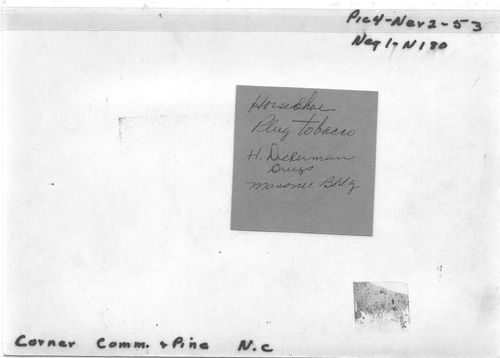 Pic4-Nev2-53
Neg 1-N180
Horseshoe
Plug tobacco
H. Dickerman
Drugs
Masonic Bldg
Corner Comm. + Pine N.C